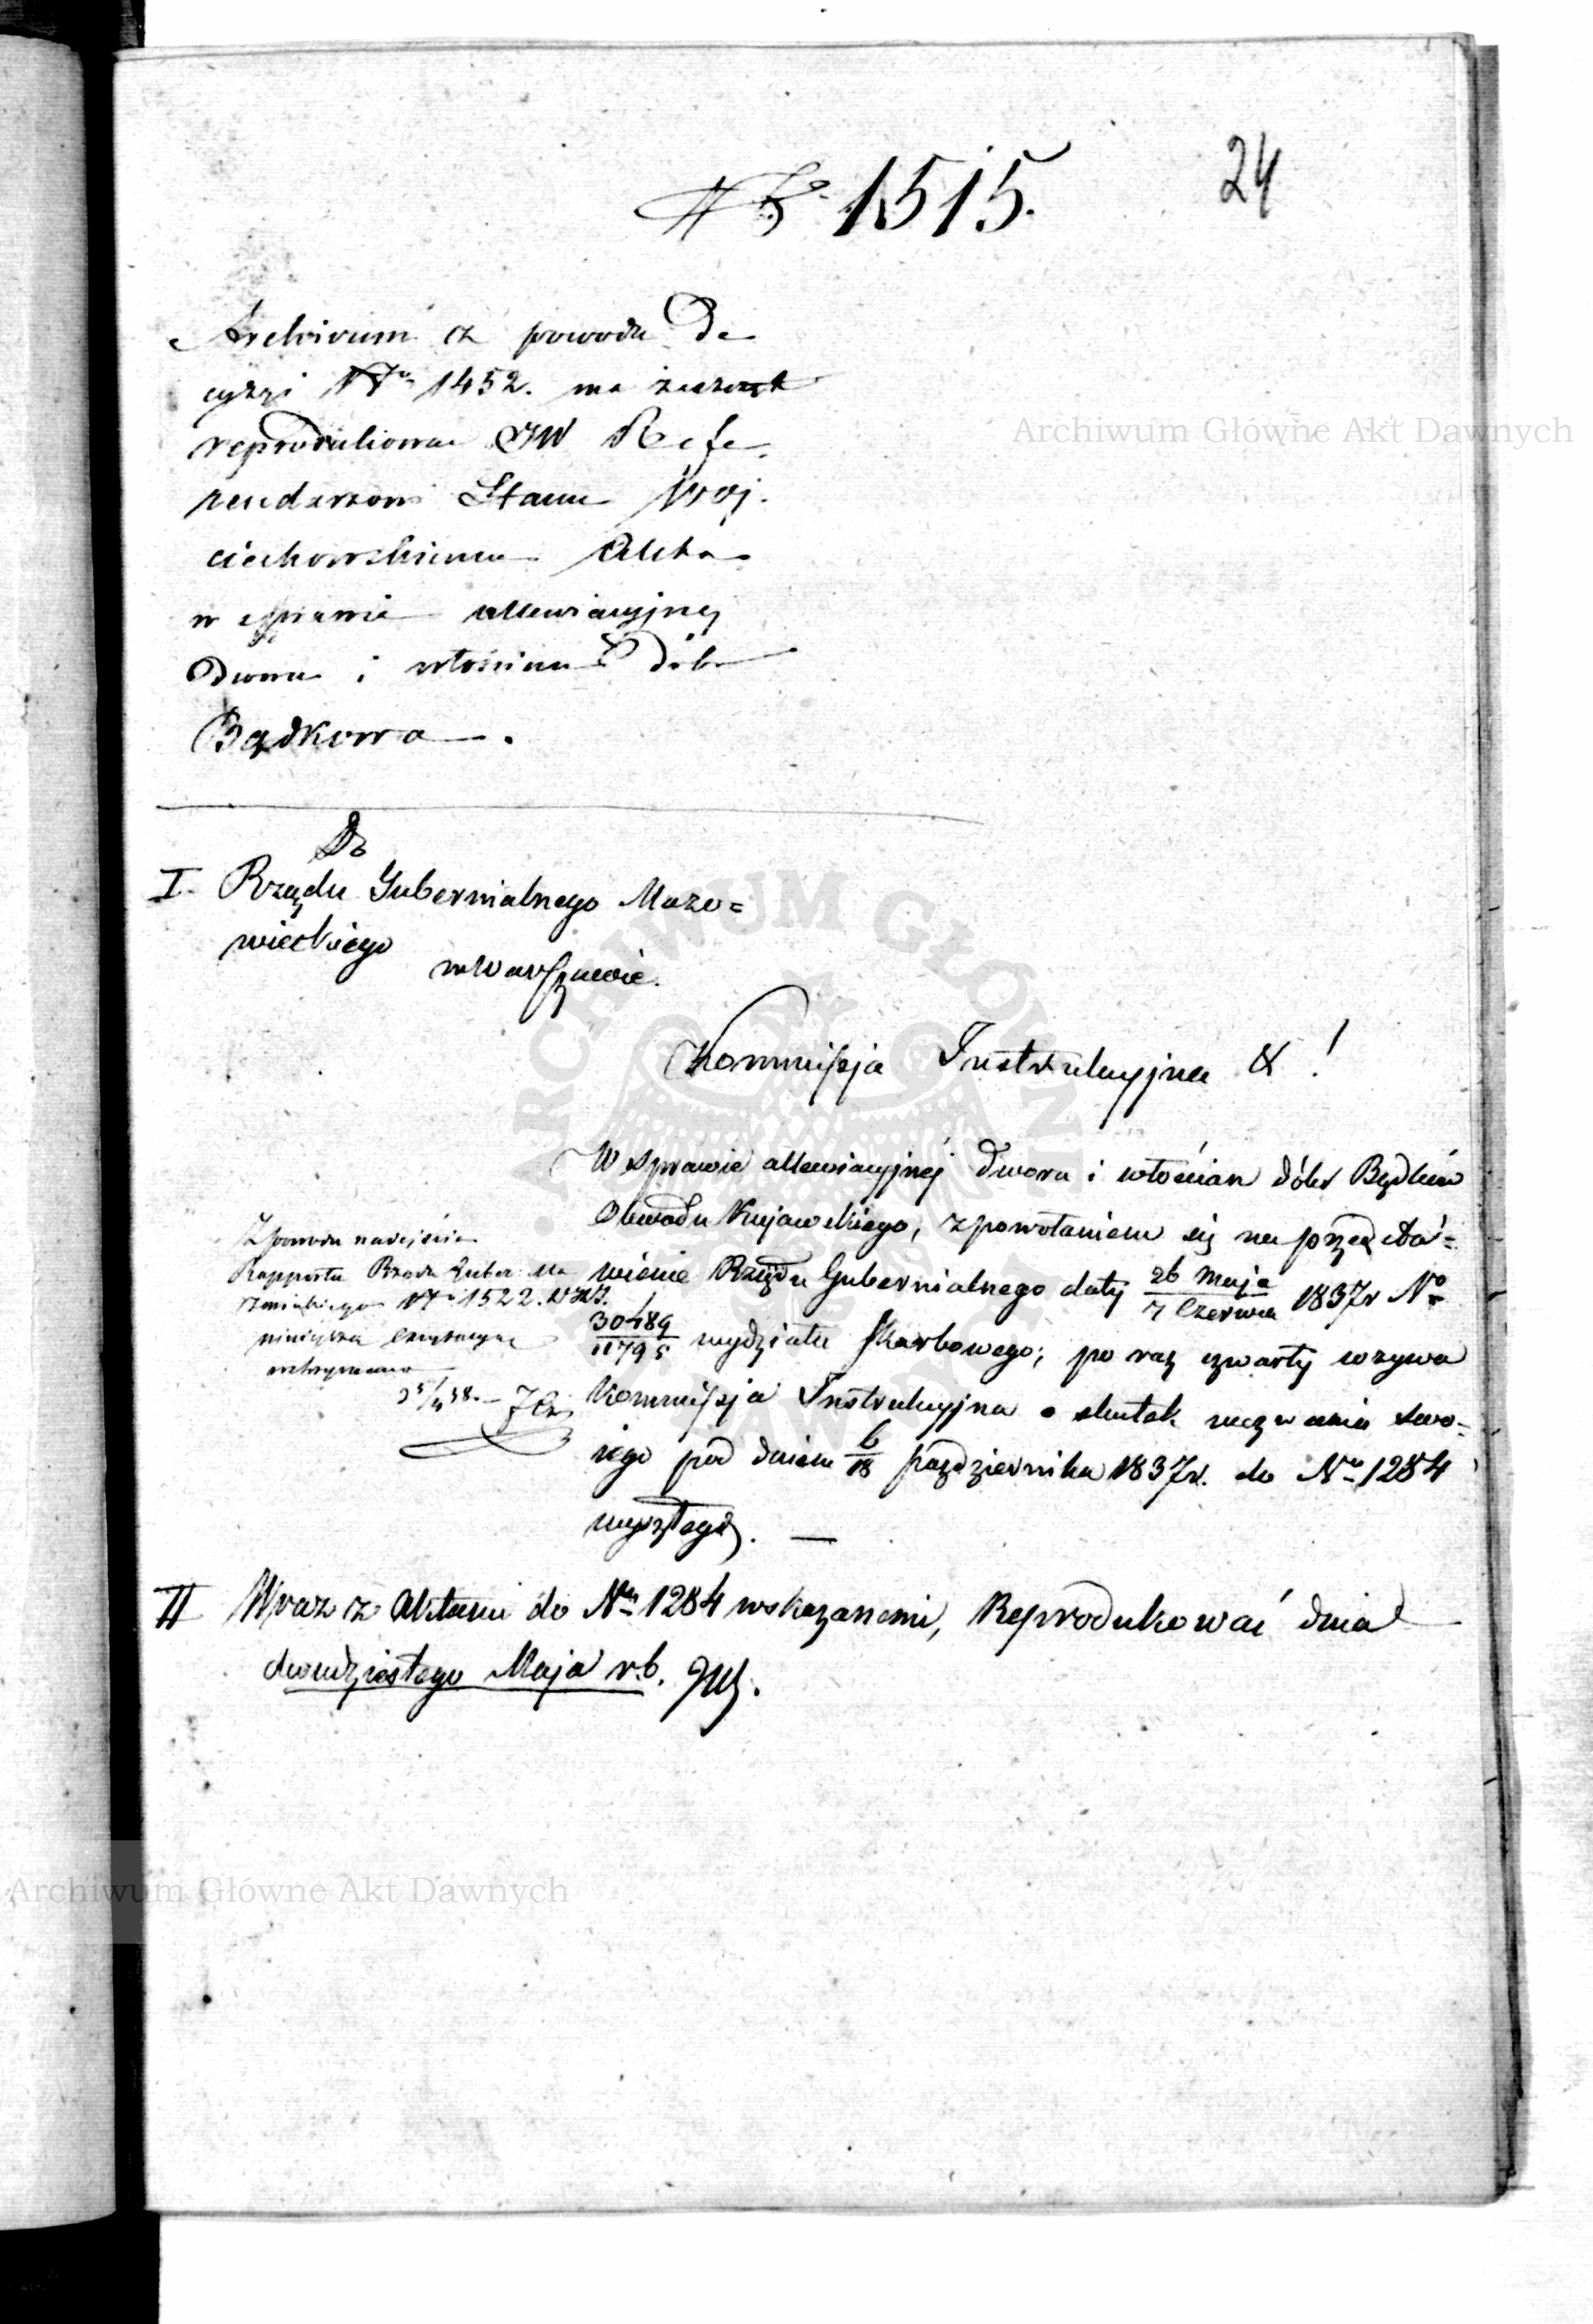 24
No 1515.
Archivum z powodu De
cyzyi No 1452. ma zaszczyt
reprodukować JW Refe
rendarzowi Stanu Woj
ciechowskiemu Akta
w sprawie allewiacyjnej
Dworu i włościan Dóbr
Bądkowa.
Do
I. Rządu Gubernialnego Mazo=
wieckiego
w Warszawie.
Kommissja Instrukcyjna & !
W sprawie allewiacyjnéj Dworu i włościan dóbr Bądków
Obwodu Kujawskiego, z powołaniem się na przedsta=
wienie Rządu Gubernialnego daty 26 Maja / 7 Czerwca 1837r No
30489 / 11795 wydziału Skarbowego; po raz czwarty wzywa
Kommissja Instrukcyjna o skutek wezwania swo=
jego pod dniem 6/18 Października 1837r. do No 1284
wyszłego. —
Z powodu nadejścia
Rapportu Rządu Guber: Ma
zowieckiego No 1522.
niniejsza
wstrzymano
II Wraz z Aktami do No 1284 wskazanemi, Reprodukować dnia
dwudziestego Maja r.b.
Archiwum Główne Akt Dawnych
Archiwum Główne Akt Dawnych